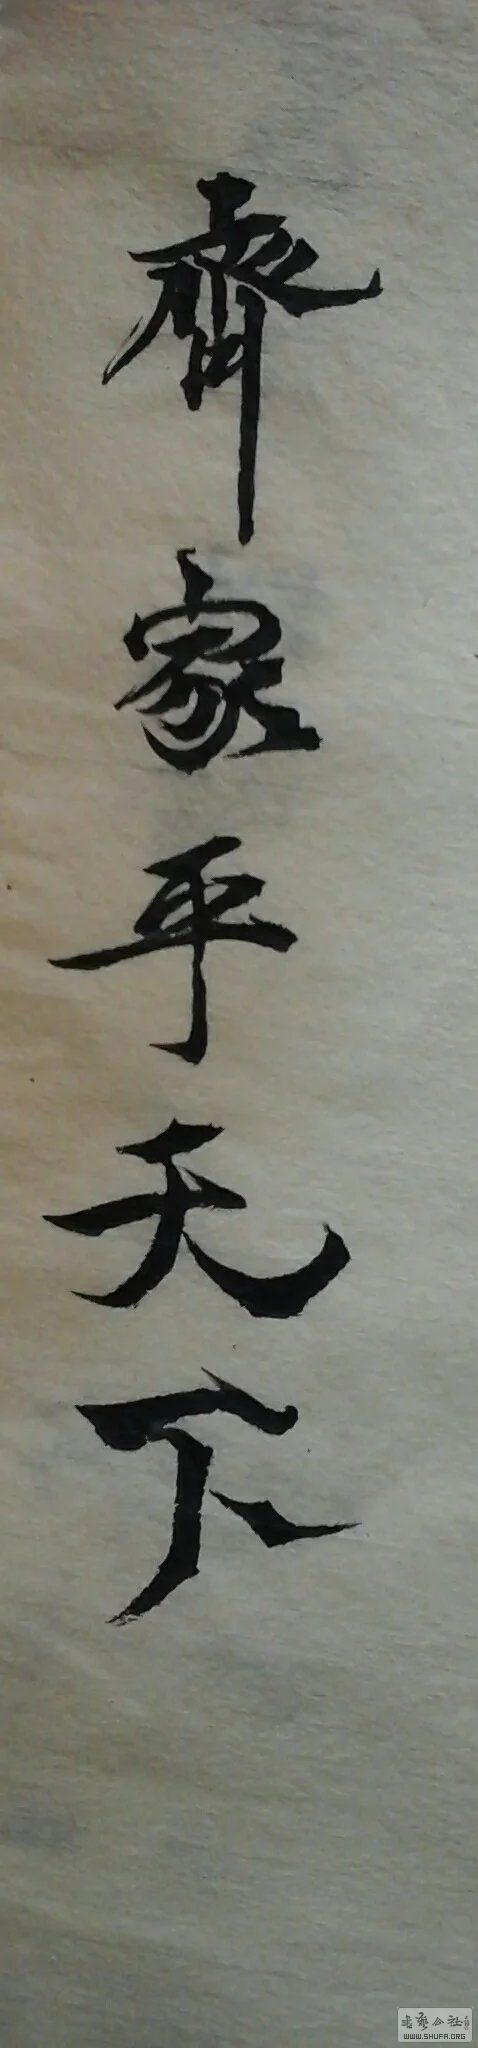 齊家平天下
書藝公社
WWW.SHUFA.ORG